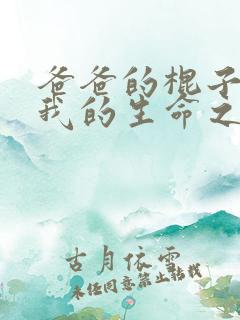 爸爸的棍子
我的生命之
古月依雲
未经同意禁止转载